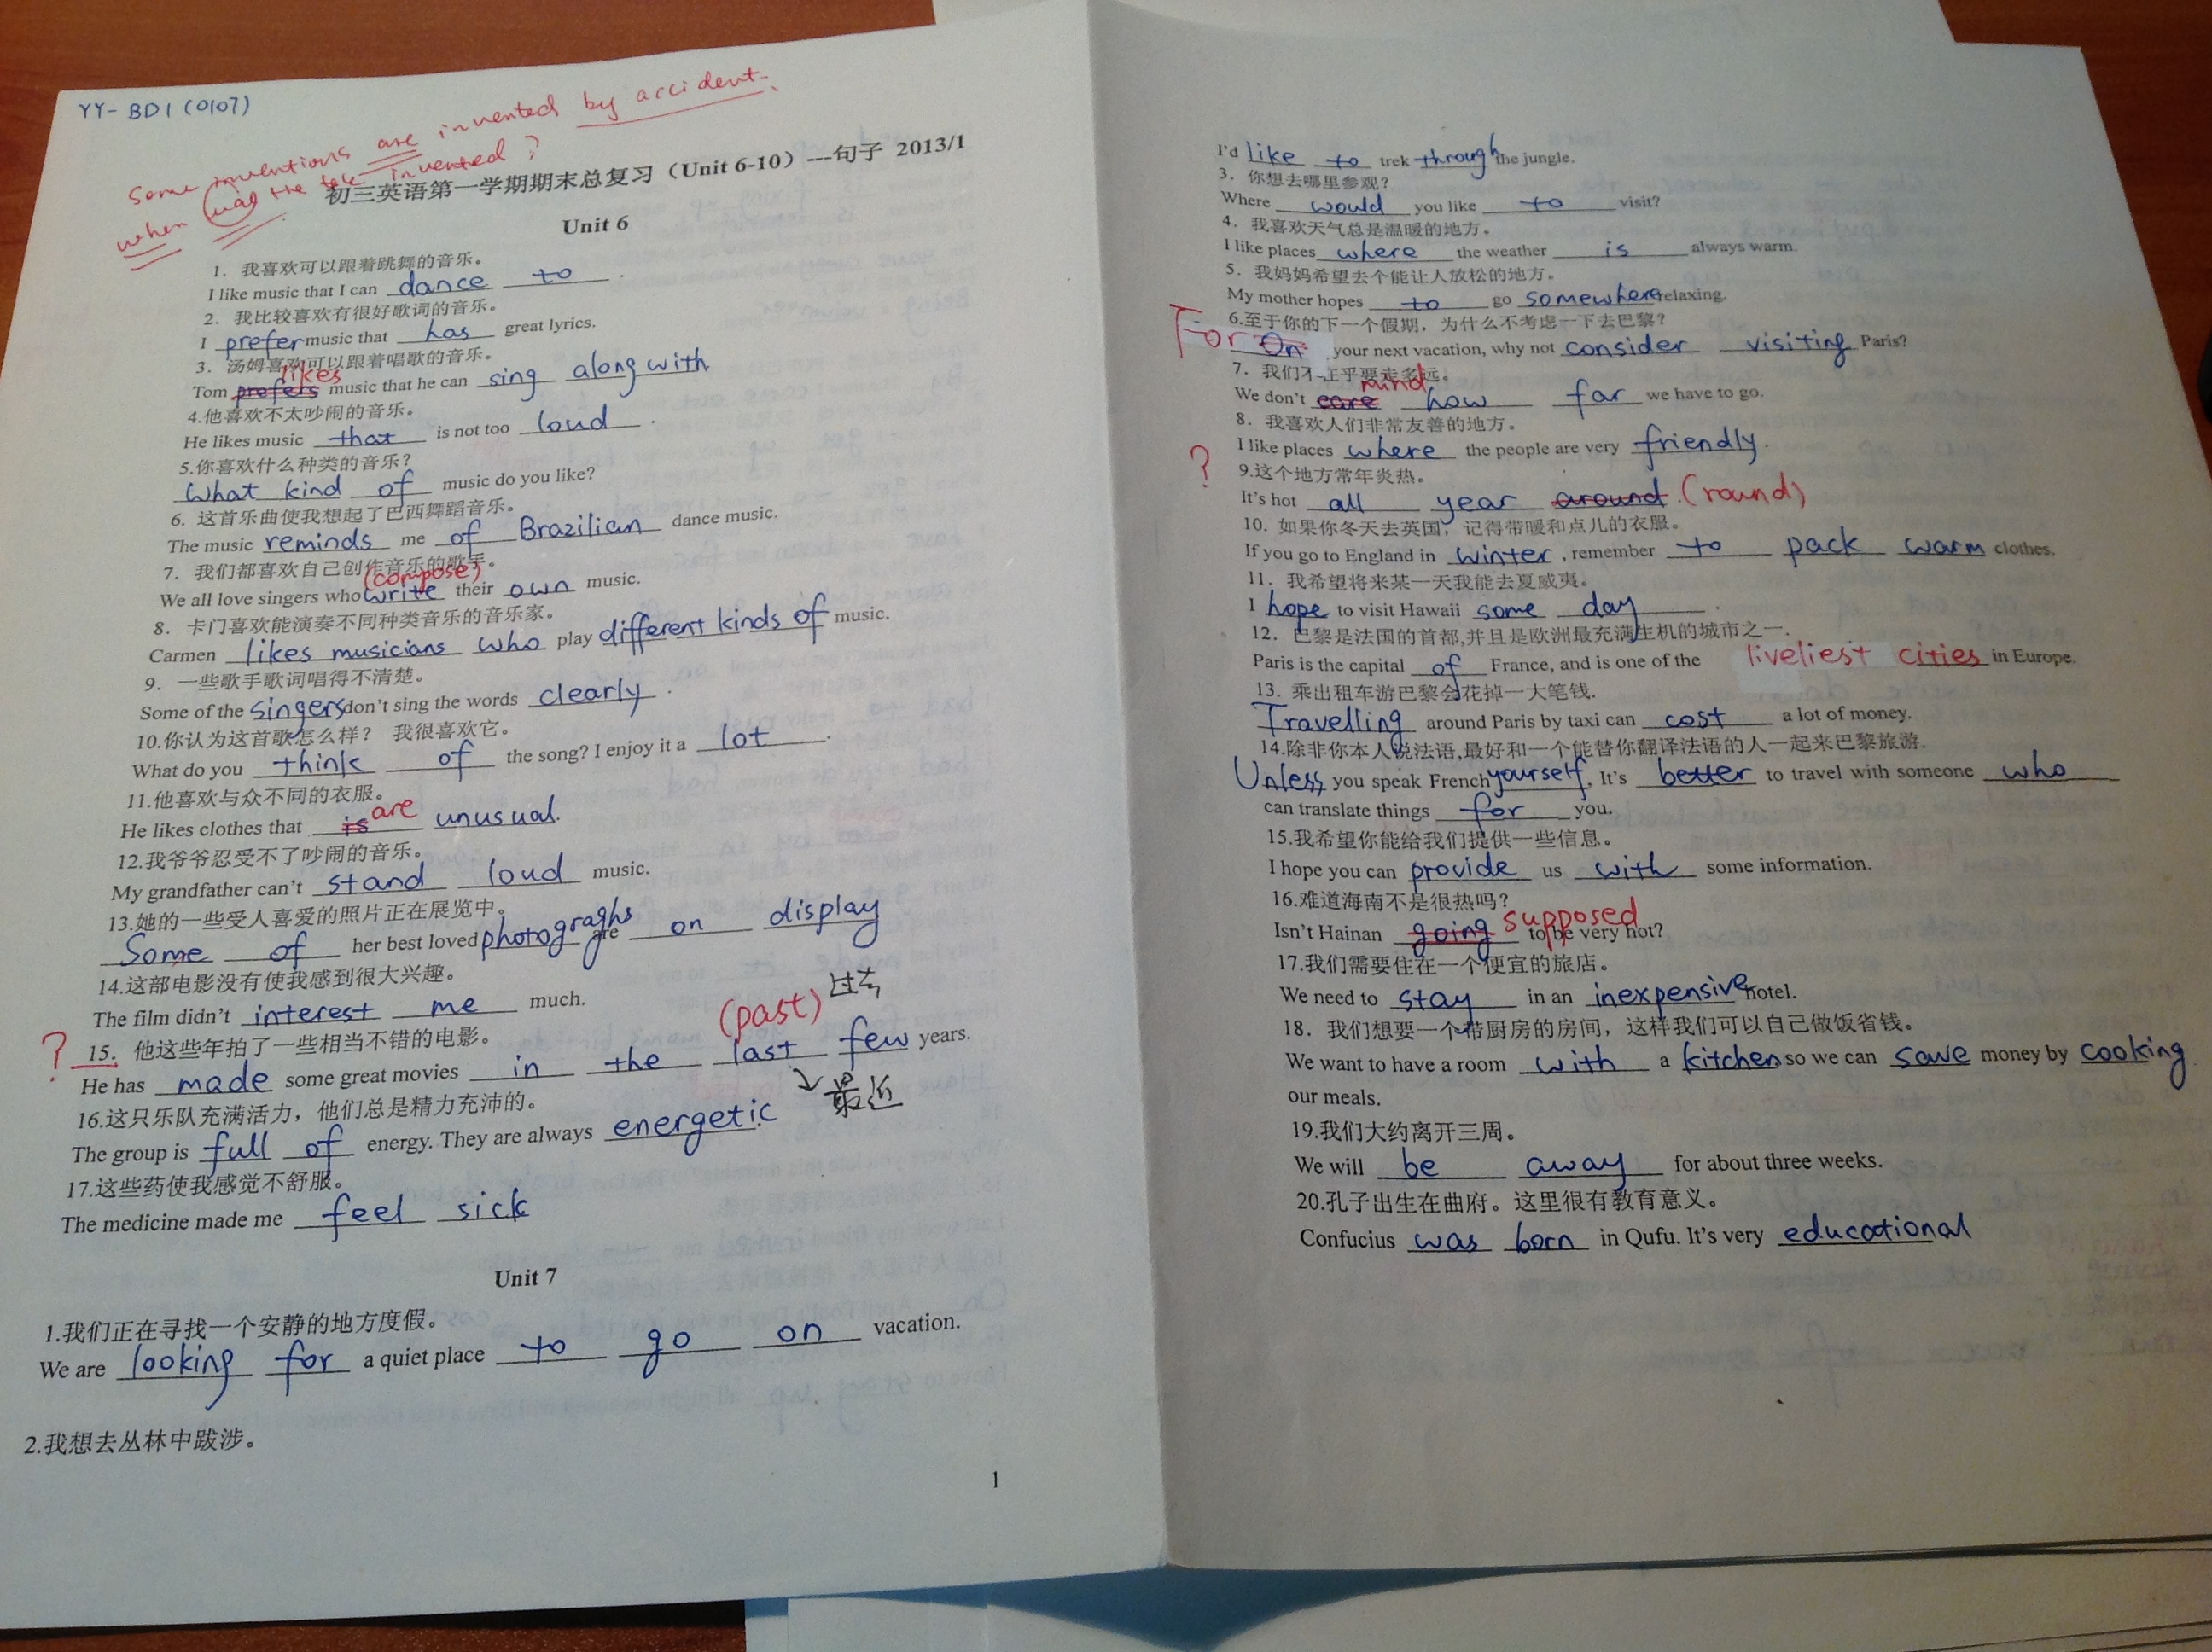 YY- BD1 (0107)
Some inventions are invented by accident.
when was the tea invented?
初三英语第一学期期末总复习（Unit 6-10）---句子 2013/1
Unit 6
1. 我喜欢可以跟着跳舞的音乐。
I like music that I can dance to .
2. 我比较喜欢有很好歌词的音乐。
I prefer music that has great lyrics.
3. 汤姆喜欢可以跟着唱歌的音乐。
likes
Tom prefers music that he can sing along with
4.他喜欢不太吵闹的音乐。
He likes music that is not too loud .
5.你喜欢什么种类的音乐?
What kind of music do you like?
6. 这首乐曲使我想起了巴西舞蹈音乐。
The music reminds me of Brazilian dance music.
7. 我们都喜欢自己创作音乐的歌手。
(compose)
We all love singers who write their own music.
8. 卡门喜欢能演奏不同种类音乐的音乐家。
Carmen likes musicians who play different kinds of music.
9. 一些歌手歌词唱得不清楚。
Some of the singers don't sing the words clearly .
10.你认为这首歌怎么样? 我很喜欢它。
What do you think of the song? I enjoy it a lot .
11.他喜欢与众不同的衣服。
He likes clothes that is are unusual.
12.我爷爷忍受不了吵闹的音乐。
My grandfather can't stand loud music.
13.她的一些受人喜爱的照片正在展览中。
Some of her best loved photograghs are on display
14.这部电影没有使我感到很大兴趣。
The film didn't interest me much.
(past) 过去
? 15. 他这些年拍了一些相当不错的电影。
He has made some great movies in the last few years.
最近
16.这只乐队充满活力，他们总是精力充沛的。
The group is full of energy. They are always energetic.
17.这些药使我感觉不舒服。
The medicine made me feel sick
Unit 7
1.我们正在寻找一个安静的地方度假。
We are looking for a quiet place to go on vacation.
2.我想去丛林中跋涉。
1
I'd like to trek through the jungle.
3. 你想去哪里参观?
Where would you like to visit?
4. 我喜欢天气总是温暖的地方。
I like places where the weather is always warm.
5. 我妈妈希望去个能让人放松的地方。
My mother hopes to go somewhere relaxing.
6.至于你的下一个假期，为什么不考虑一下去巴黎?
For On your next vacation, why not consider visiting Paris?
7. 我们不在乎要走多远。
mind
We don't care how far we have to go.
8. 我喜欢人们非常友善的地方。
I like places where the people are very friendly.
? 9.这个地方常年炎热。
It's hot all year around. (round)
10. 如果你冬天去英国，记得带暖和点儿的衣服。
If you go to England in winter, remember to pack warm clothes.
11. 我希望将来某一天我能去夏威夷。
I hope to visit Hawaii some day .
12. 巴黎是法国的首都,并且是欧洲最充满生机的城市之一.
Paris is the capital of France, and is one of the liveliest cities in Europe.
13. 乘出租车游巴黎会花掉一大笔钱.
Travelling around Paris by taxi can cost a lot of money.
14.除非你本人说法语,最好和一个能替你翻译法语的人一起来巴黎旅游.
Unless you speak French yourself, It's better to travel with someone who
can translate things for you.
15.我希望你能给我们提供一些信息。
I hope you can provide us with some information.
16.难道海南不是很热吗?
supposed
Isn't Hainan going to be very hot?
17.我们需要住在一个便宜的旅店。
We need to stay in an inexpensive hotel.
18. 我们想要一个带厨房的房间，这样我们可以自己做饭省钱。
We want to have a room with a kitchen, so we can save money by cooking
our meals.
19.我们大约离开三周。
We will be away for about three weeks.
20.孔子出生在曲府。这里很有教育意义。
Confucius was born in Qufu. It's very educational